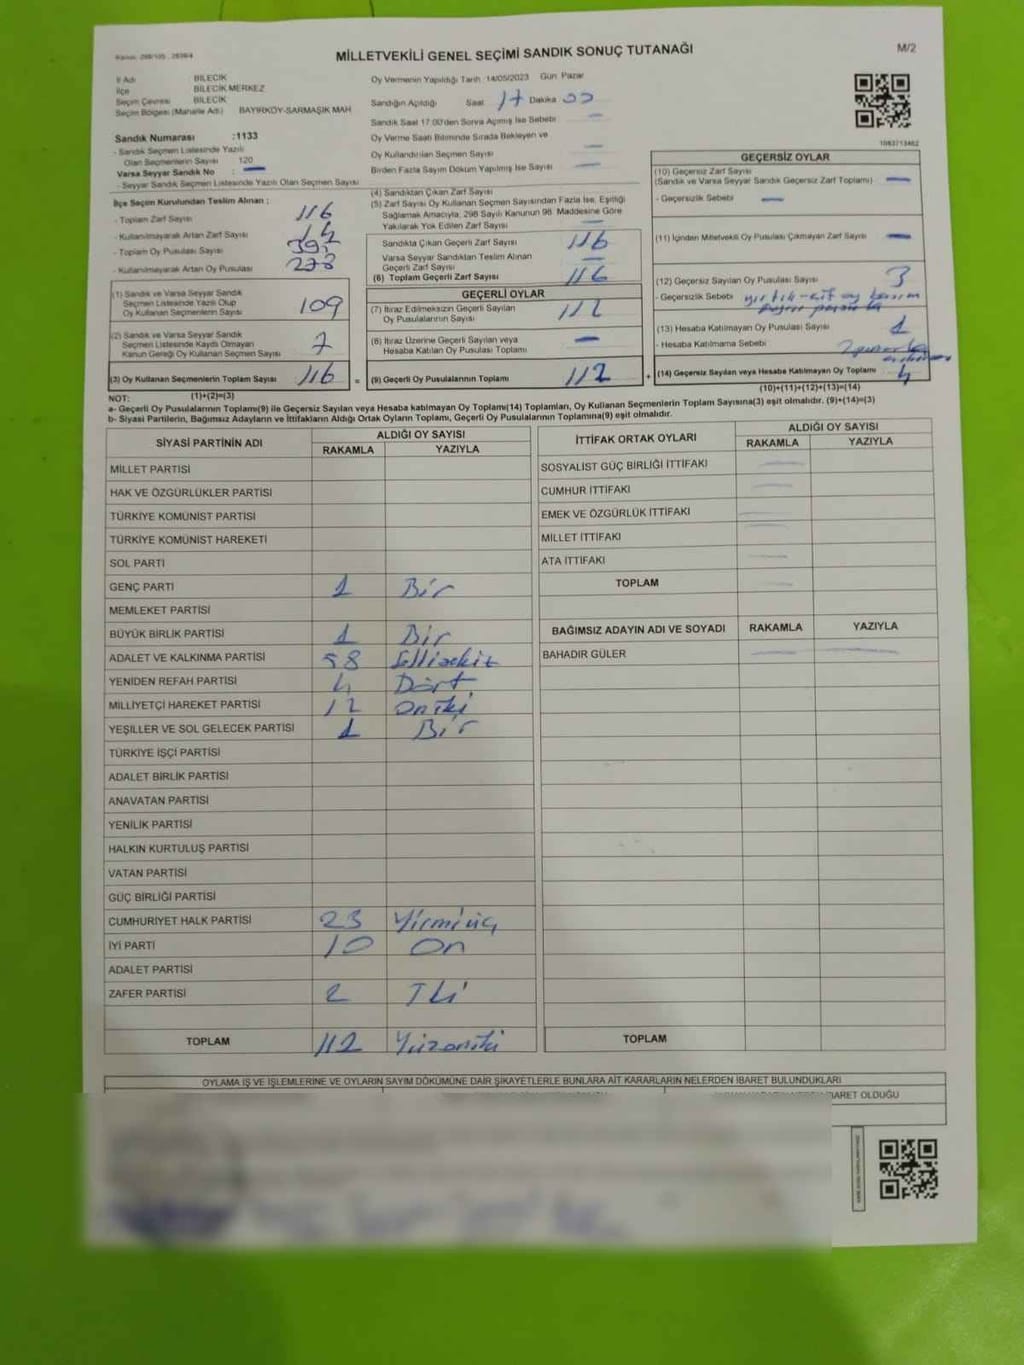 Kanun: 298/105 , 2839/4
MİLLETVEKİLİ GENEL SEÇİMİ SANDIK SONUÇ TUTANAĞI
M/2
İl Adı BİLECİK
İlçe BİLECİK MERKEZ
Seçim Çevresi BİLECİK
Seçim Bölgesi (Mahalle Adı) BAYIRKÖY-SARMAŞIK MAH
Sandık Numarası :1133
- Sandık Seçmen Listesinde Yazılı
Olan Seçmenlerin Sayısı 120
Varsa Seyyar Sandık No : —
- Seyyar Sandık Seçmen Listesinde Yazılı Olan Seçmen Sayısı
Oy Vermenin Yapıldığı Tarih 14/05/2023 Gün Pazar
Sandığın Açıldığı Saat 17 Dakika 00
Sandık Saat 17:00'den Sonra Açılmış İse Sebebi —
Oy Verme Saati Bitiminde Sırada Bekleyen ve
Oy Kullandırılan Seçmen Sayısı —
Birden Fazla Sayım Döküm Yapılmış İse Sayısı —
1083713462
İlçe Seçim Kurulundan Teslim Alınan :
- Toplam Zarf Sayısı 116
- Kullanılmayarak Artan Zarf Sayısı
- Toplam Oy Pusulası Sayısı
- Kullanılmayarak Artan Oy Pusulası 278
(1) Sandık ve Varsa Seyyar Sandık
Seçmen Listesinde Yazılı Olup
Oy Kullanan Seçmenlerin Sayısı 109
(2) Sandık ve Varsa Seyyar Sandık
Seçmen Listesinde Kayıtlı Olmayan
Kanun Gereği Oy Kullanan Seçmen Sayısı 7
(3) Oy Kullanan Seçmenlerin Toplam Sayısı 116 =
(1)+(2)=(3)
(4) Sandıktan Çıkan Zarf Sayısı
(5) Zarf Sayısı Oy Kullanan Seçmen Sayısından Fazla İse, Eşitliği
Sağlamak Amacıyla, 298 Sayılı Kanunun 98. Maddesine Göre
Yakılarak Yok Edilen Zarf Sayısı —
Sandıkta Çıkan Geçerli Zarf Sayısı 116
Varsa Seyyar Sandıktan Teslim Alınan
Geçerli Zarf Sayısı —
(6) Toplam Geçerli Zarf Sayısı 116
GEÇERLİ OYLAR
(7) İtiraz Edilmeksizin Geçerli Sayılan
Oy Pusulalarının Sayısı 112
(8) İtiraz Üzerine Geçerli Sayılan veya
Hesaba Katılan Oy Pusulası Toplamı —
(9) Geçerli Oy Pusulalarının Toplamı 112 +
GEÇERSİZ OYLAR
(10) Geçersiz Zarf Sayısı
(Sandık ve Varsa Seyyar Sandık Geçersiz Zarf Toplamı) —
- Geçersizlik Sebebi —
(11) İçinden Milletvekili Oy Pusulası Çıkmayan Zarf Sayısı —
(12) Geçersiz Sayılan Oy Pusulası Sayısı 3
- Geçersizlik Sebebi
(13) Hesaba Katılmayan Oy Pusulası Sayısı 1
- Hesaba Katılmama Sebebi
(14) Geçersiz Sayılan veya Hesaba Katılmayan Oy Toplamı 4
(10)+(11)+(12)+(13)=(14)
NOT:
a- Geçerli Oy Pusulalarının Toplamı(9) ile Geçersiz Sayılan veya Hesaba katılmayan Oy Toplamı(14) Toplamları, Oy Kullanan Seçmenlerin Toplam Sayısına(3) eşit olmalıdır. (9)+(14)=(3)
b- Siyasi Partilerin, Bağımsız Adayların ve İttifakların Aldığı Ortak Oyların Toplamı, Geçerli Oy Pusulalarının Toplamına(9) eşit olmalıdır.
SİYASİ PARTİNİN ADI ALDIĞI OY SAYISI
RAKAMLA YAZIYLA
MİLLET PARTİSİ
HAK VE ÖZGÜRLÜKLER PARTİSİ
TÜRKİYE KOMÜNİST PARTİSİ
TÜRKİYE KOMÜNİST HAREKETİ
SOL PARTİ
GENÇ PARTİ 1 Bir
MEMLEKET PARTİSİ
BÜYÜK BİRLİK PARTİSİ 1 Bir
ADALET VE KALKINMA PARTİSİ 58 Ellisekiz
YENİDEN REFAH PARTİSİ 4 Dört
MİLLİYETÇİ HAREKET PARTİSİ 12 Oniki
YEŞİLLER VE SOL GELECEK PARTİSİ 1 Bir
TÜRKİYE İŞÇİ PARTİSİ
ADALET BİRLİK PARTİSİ
ANAVATAN PARTİSİ
YENİLİK PARTİSİ
HALKIN KURTULUŞ PARTİSİ
VATAN PARTİSİ
GÜÇ BİRLİĞİ PARTİSİ
CUMHURİYET HALK PARTİSİ 23 Yirmiüç
İYİ PARTİ 10 On
ADALET PARTİSİ
ZAFER PARTİSİ 2 İki
TOPLAM 112 Yüzoniki
İTTİFAK ORTAK OYLARI ALDIĞI OY SAYISI
RAKAMLA YAZIYLA
SOSYALİST GÜÇ BİRLİĞİ İTTİFAKI —
CUMHUR İTTİFAKI —
EMEK VE ÖZGÜRLÜK İTTİFAKI —
MİLLET İTTİFAKI —
ATA İTTİFAKI —
TOPLAM —
BAĞIMSIZ ADAYIN ADI VE SOYADI RAKAMLA YAZIYLA
BAHADIR GÜLER — —
TOPLAM
OYLAMA İŞ VE İŞLEMLERİNE VE OYLARIN SAYIM DÖKÜMÜNE DAİR ŞİKAYETLERLE BUNLARA AİT KARARLARIN NELERDEN İBARET BULUNDUKLARI
OLDUĞU